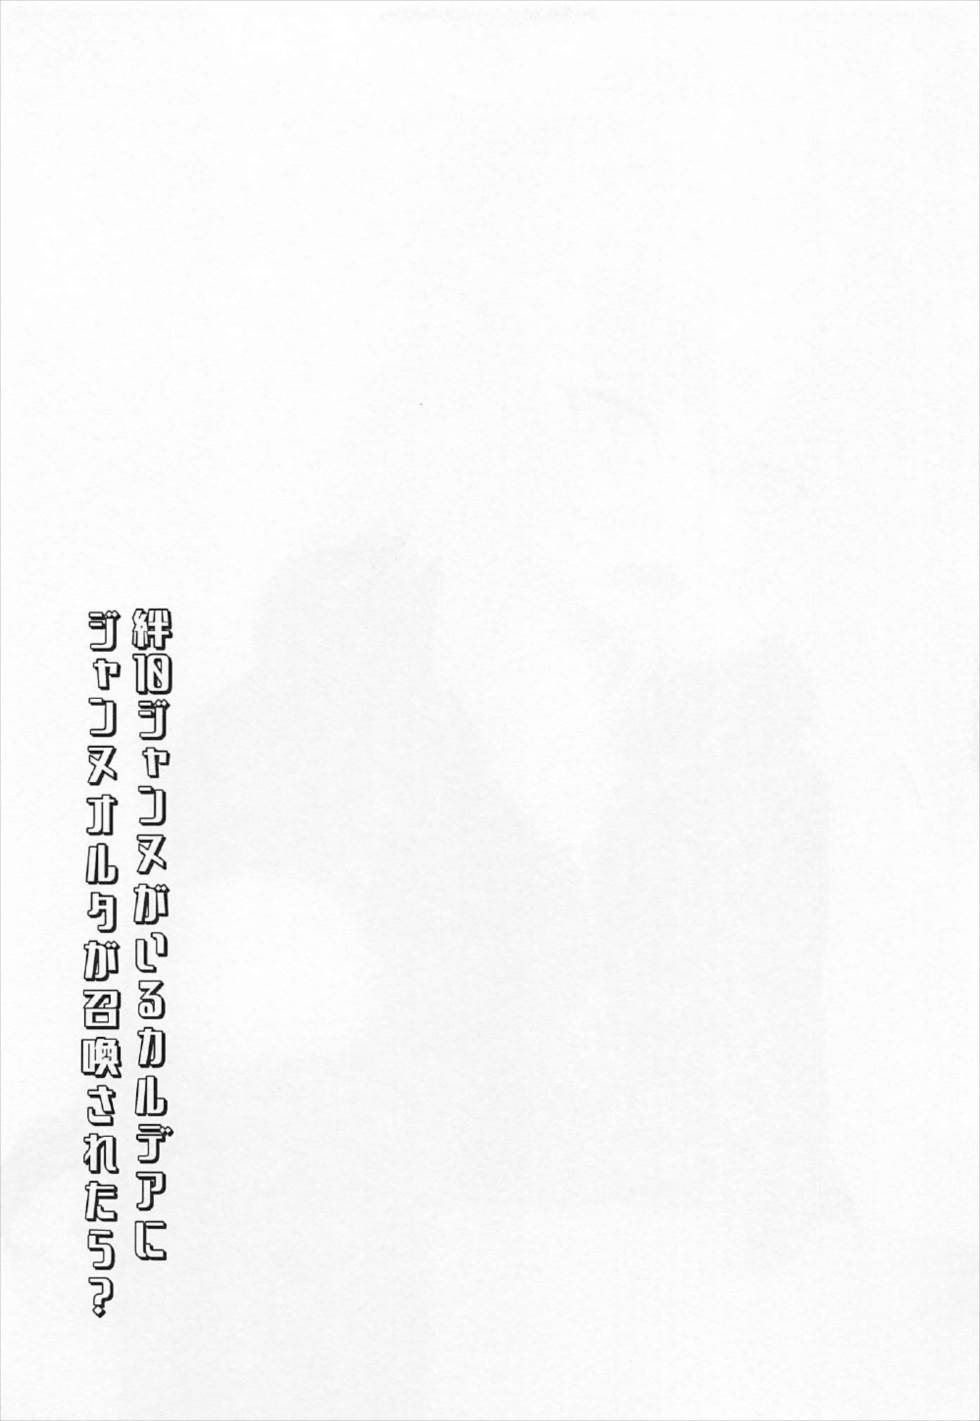 絆10ジャンヌがいるカルデアに
ジャンヌオルタが召喚されたら?